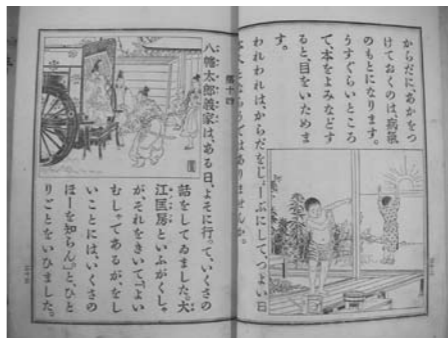 からだに、あかをつ
けておくのは、病氣
のもとになります。
うすぐらいところ
で、本をよみなどす
ると、目をいためま
す。
われわれは、からだをじょーぶにして、つよい日
第十四
八幡太郎義家は、ある日、よそに行って、いくさの
話をしてゐました。大
江匡房といふがくし
が、それをきいて、「よい
むしゃであるが、をし
いことには、いくさの
ほーを知らん。」と、ひと
りごとをいひました。